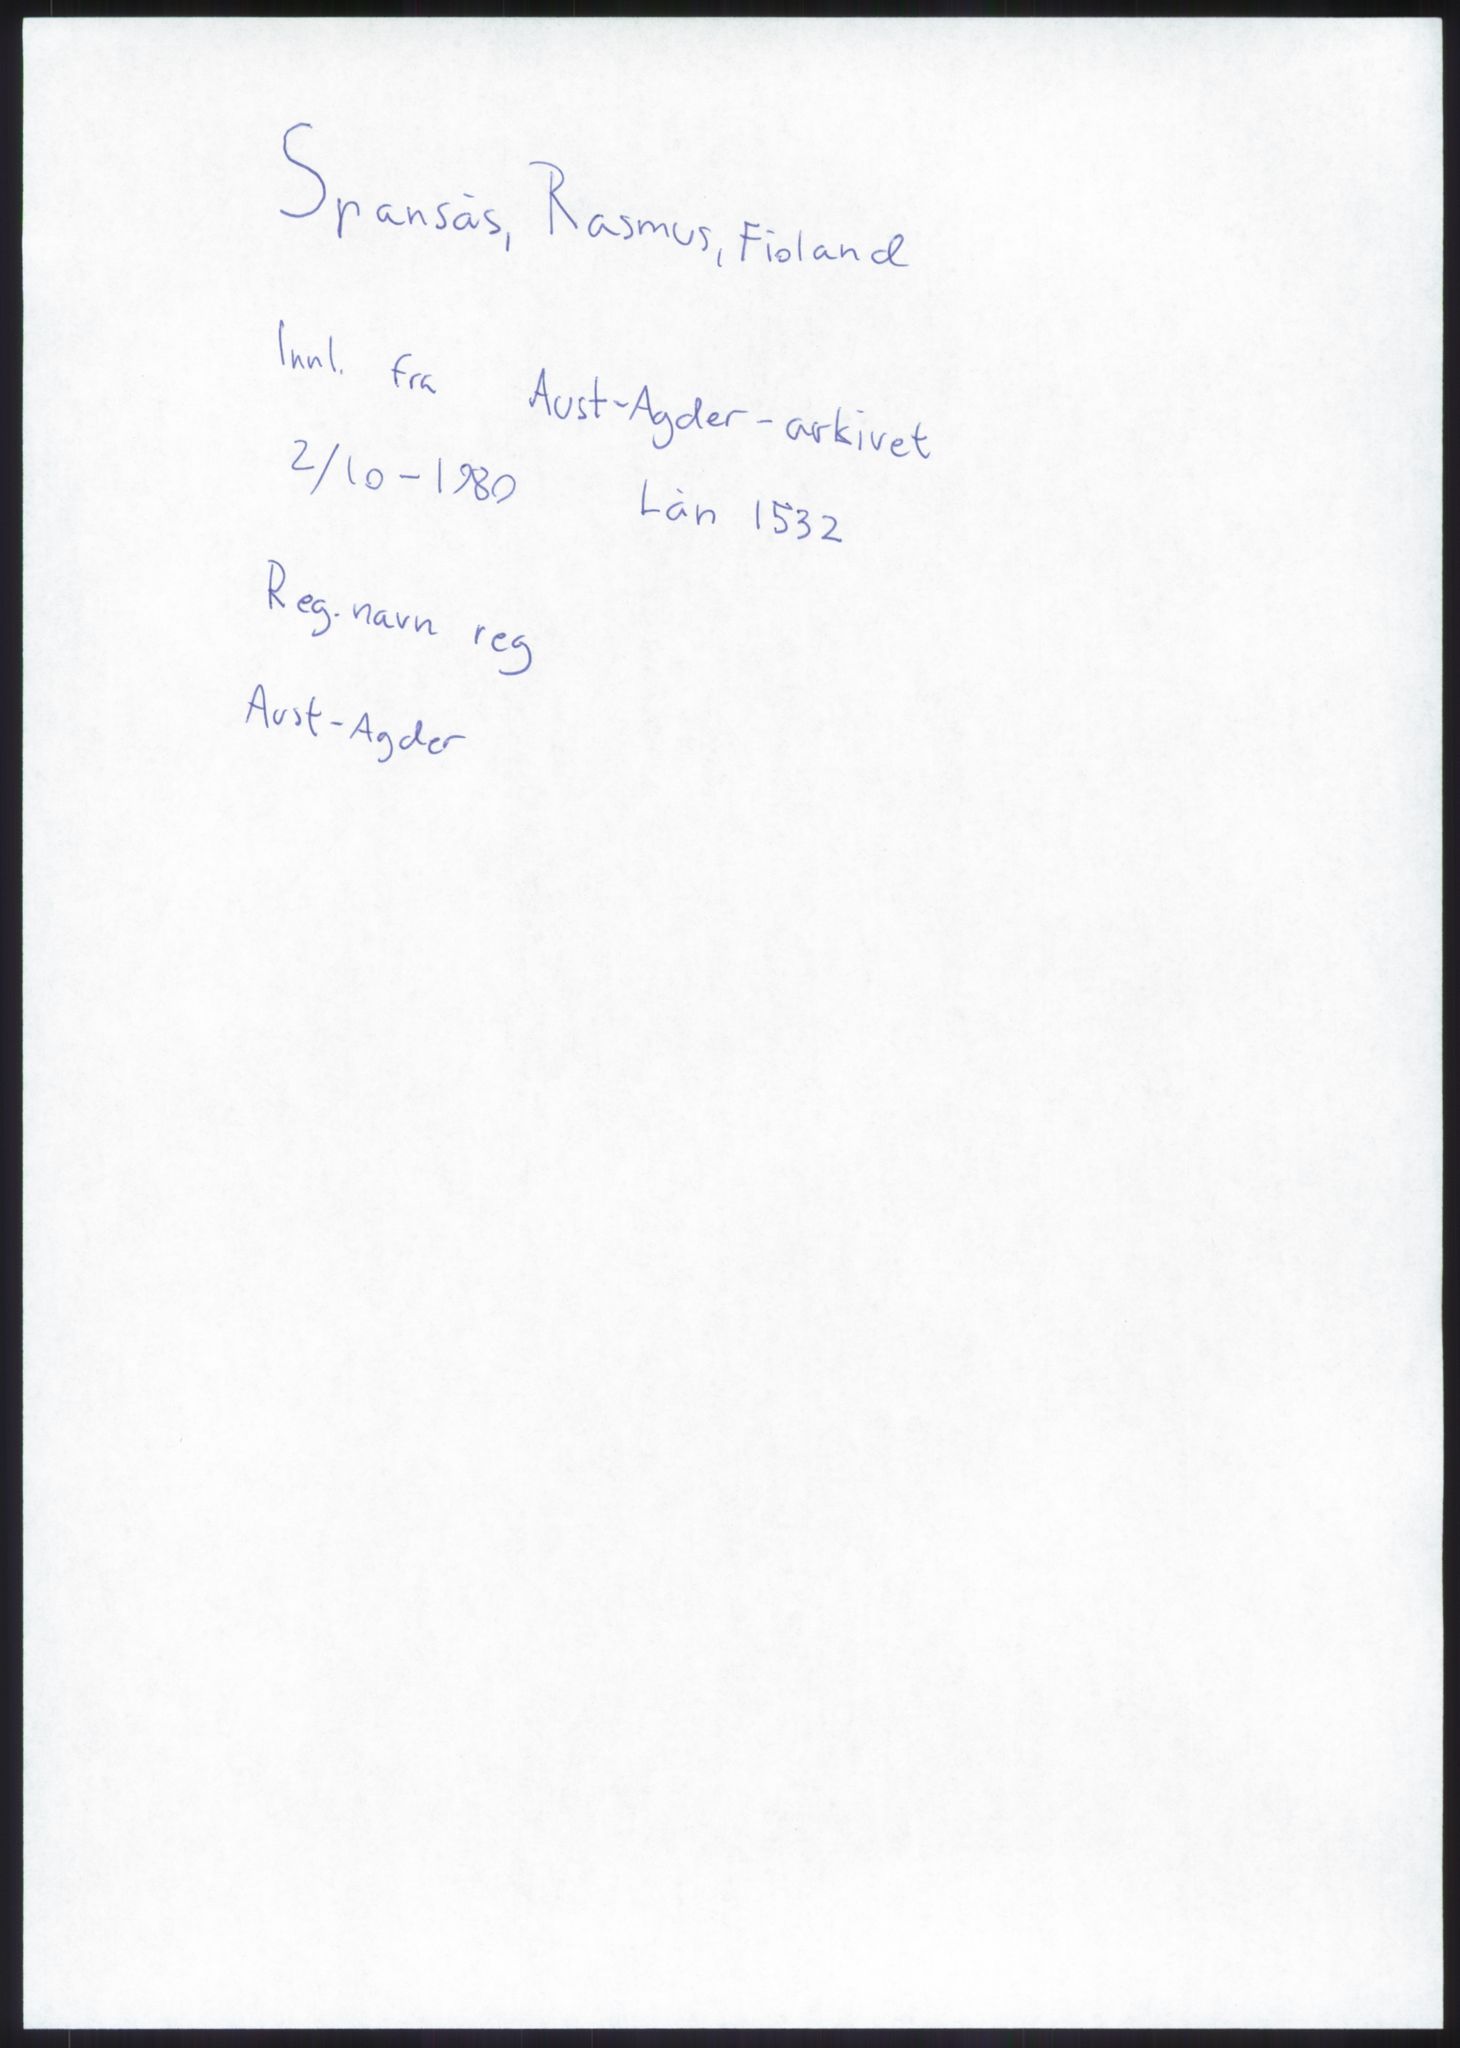 Spansås, Rasmus, Fioland
Innl. fra Aust-Agder-arkivet
2/10-1980 Lån 1532
Reg. navn reg
Aust-Agder